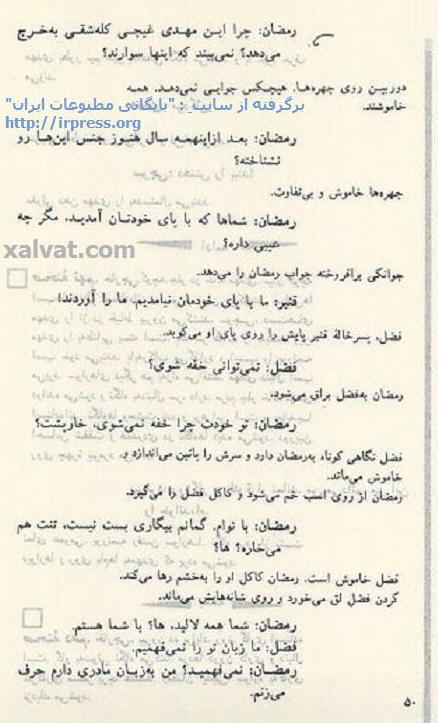 رمضان: چرا این مهدی غیچی کله‌شقی به‌خرج
می‌دهد؟ نمی‌بیند که اینها سوارند؟
دوربین روی چهره‌ها. هیچکس جوابی نمی‌دهد. همه
خاموشند.
برگرفته از سایت "بایگانی مطبوعات ایران"
http://irpress.org
رمضان: بعد ازاینهمه سال هنوز جنس این‌ها رو
نشناخته؟
چهره‌ها خاموش و بی‌تفاوت.
رمضان: شماها که با پای خودتان آمدید، مگر چه
عیبی داره؟
xalvat.com
جوانکی برافروخته جواب رمضان را می‌دهد.
قنبر: ما با پای خودمان نیامدیم. ما را آوردند!
فضل، پسرخالهٔ قنبر پایش را روی پای او می‌کوبد.
فضل: نمی‌توانی خفه شوی؟
رمضان به‌فضل براق می‌شود.
رمضان: تو خودت چرا خفه نمی‌شوی، خارپشت؟
فضل نگاهی کوتاه به‌رمضان دارد و سرش را پائین می‌اندازد و
خاموش می‌ماند.
رمضان از روی اسب خم می‌شود و کاکل فضل را می‌گیرد.
رمضان: با توام. گمانم بیگاری بست نیست، تنت هم
می‌خاره؟ ها؟
فضل خاموش است. رمضان کاکل او را به‌خشم رها می‌کند.
گردن فضل لق می‌خورد و روی شانه‌هایش می‌ماند.
رمضان: شما همه لالید، ها؟ با شما هستم.
فضل: ما زبان تو را نمی‌فهمیم.
رمضان: نمی‌فهمید؟ من به‌زبان مادری دارم حرف
می‌زنم.
۵۰